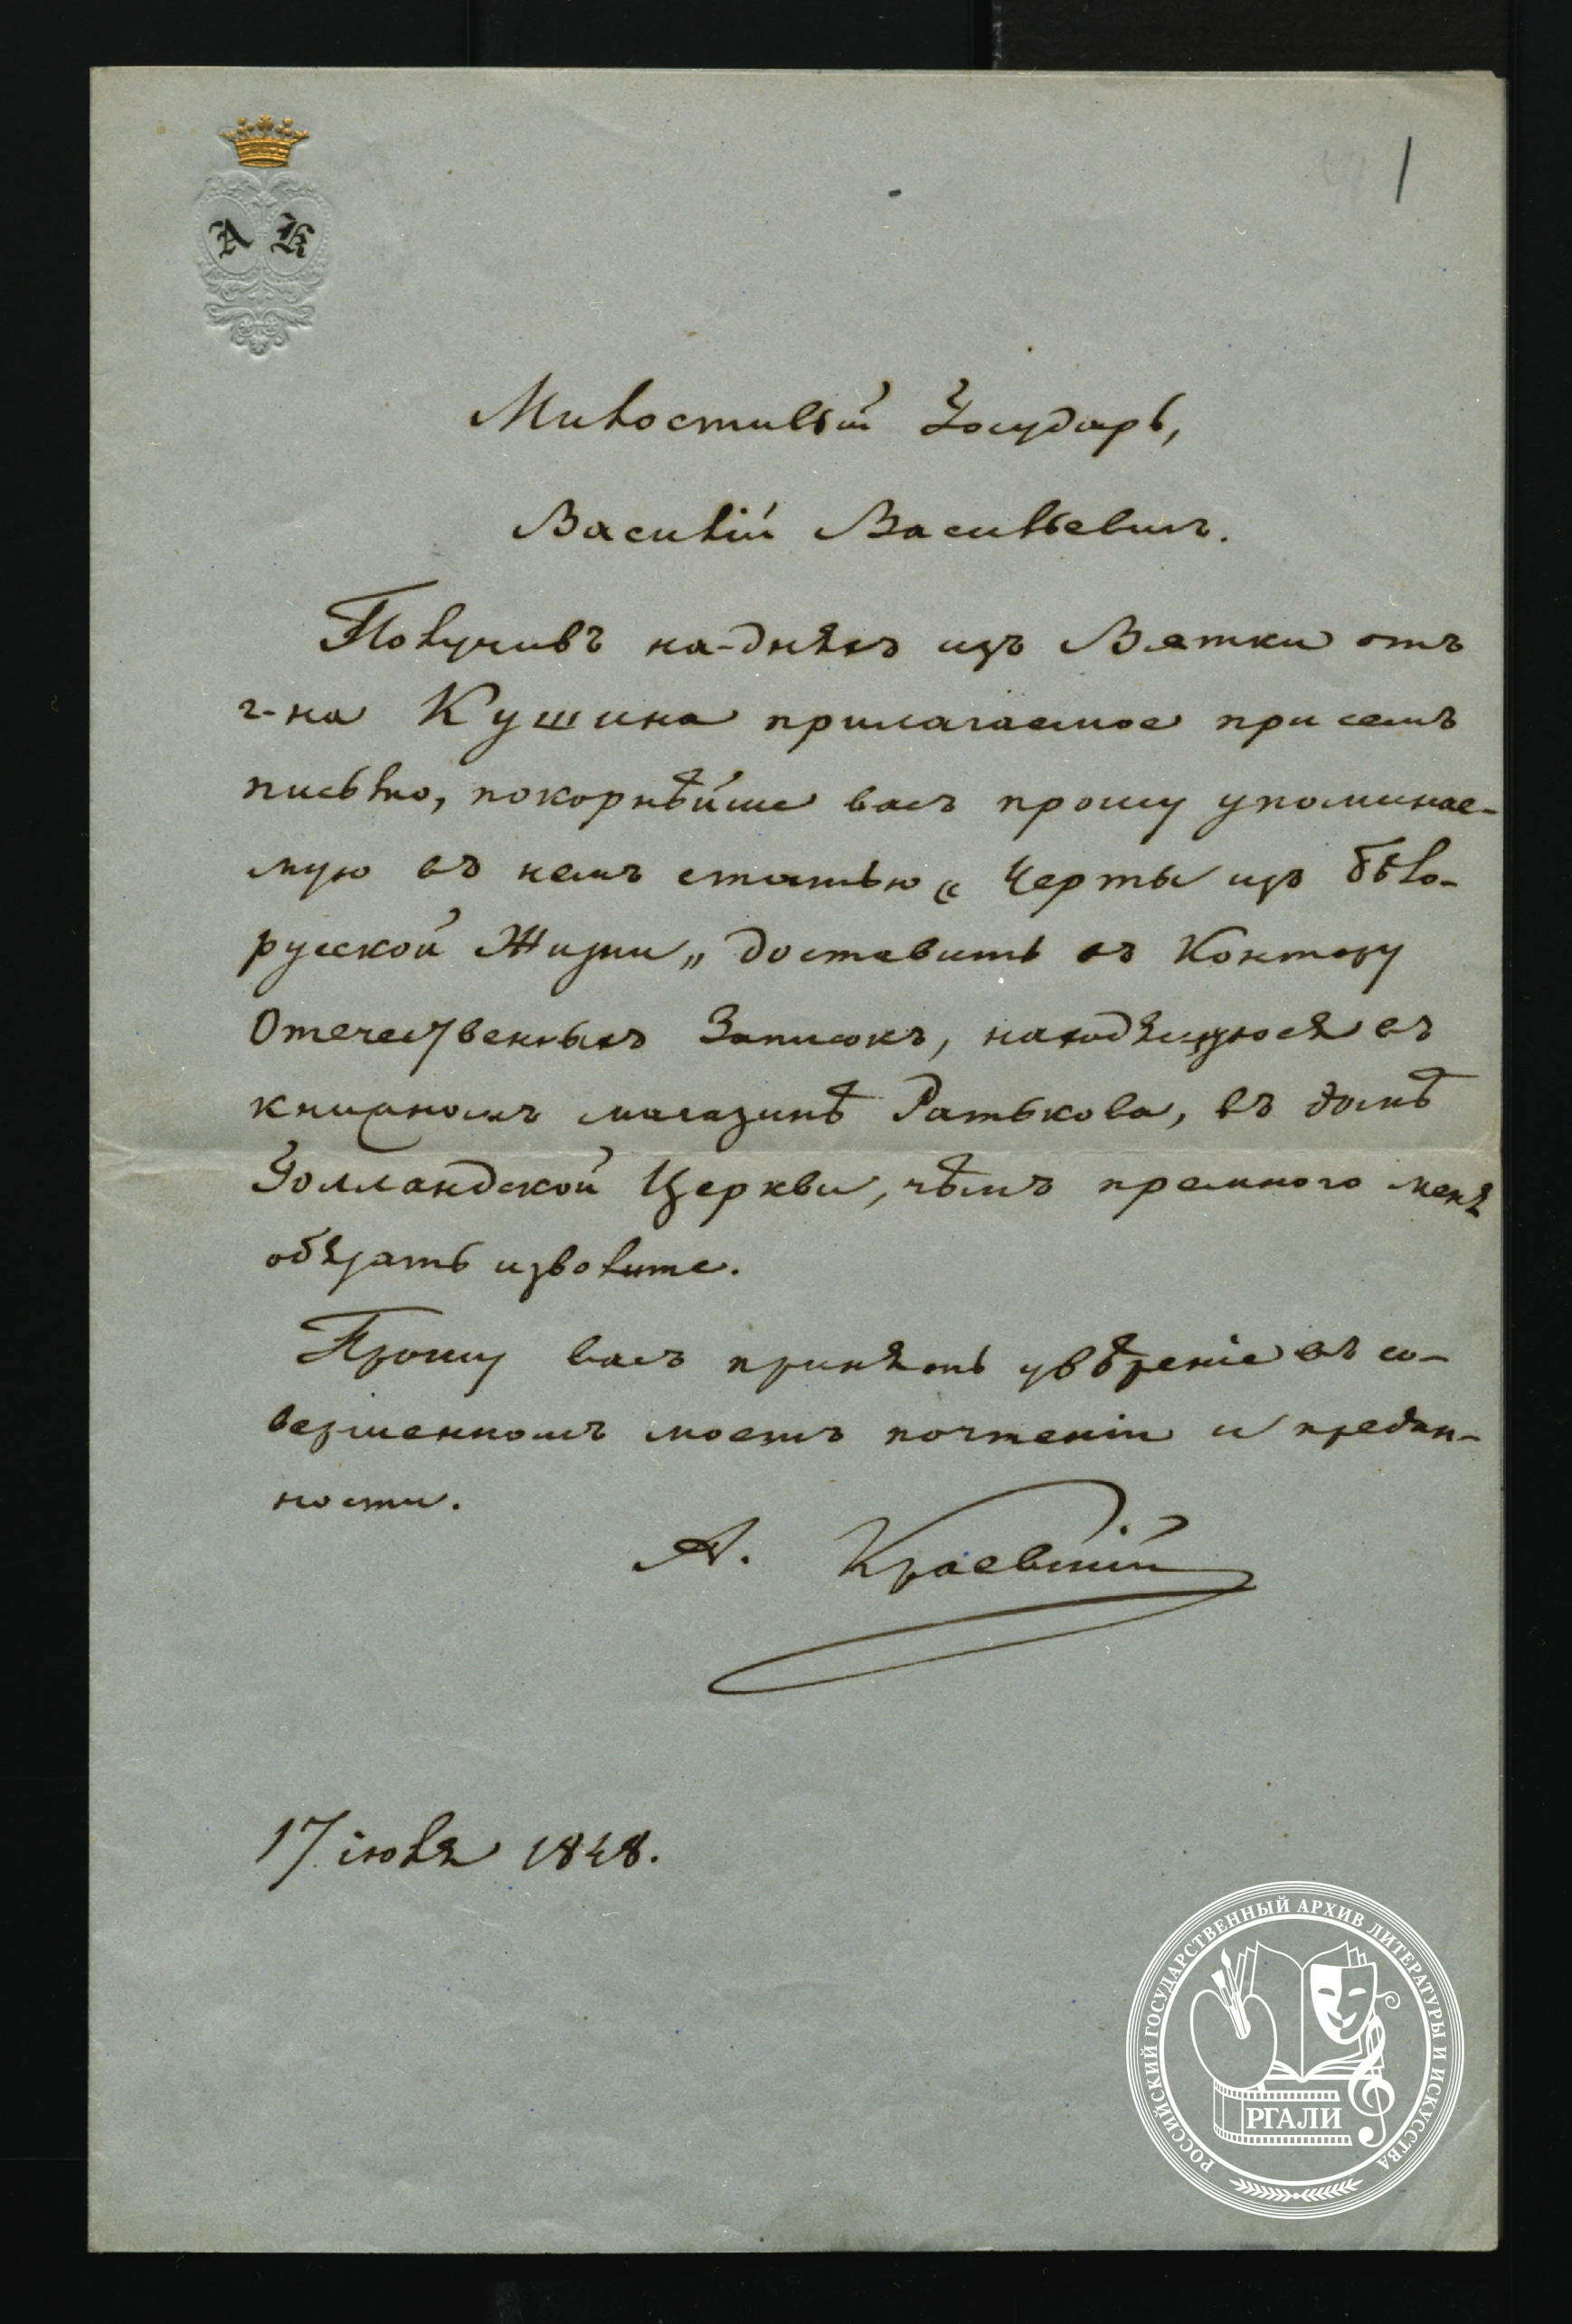 А К
1
Милостивый Государь,
Василій Васильевичъ.
Получивъ на-дняхъ изъ Вятки отъ
г-на Кушина прилагаемое при семъ
письмо, покорнѣйше васъ прошу упоминае-
мую въ немъ статью „Черты изъ бѣло-
русской Жизни„ доставить въ Контору
Отечественныхъ Записокъ, находящуюся въ
книжномъ магазинѣ Ратькова, въ домѣ
Голландской Церкви, чѣмъ премного меня
обязать изволите.
Прошу васъ принять увѣреніе въ со-
вершенномъ моемъ почтеніи и предан-
ности.
А. Краевскій
17 іюля 1848.
РОССИЙСКИЙ ГОСУДАРСТВЕННЫЙ АРХИВ ЛИТЕРАТУРЫ И ИСКУССТВА
РГАЛИ